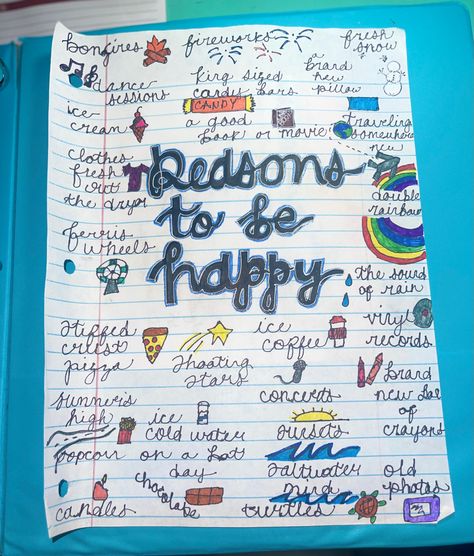 bonfires
fireworks
fresh
snow
dance
sessions
king sized
candy bars
CANDY
a
brand
new
pillow
ice
cream
a good
book or movie
traveling
somewhere
new
clothes
fresh
out
the dryer
Reasons
to be
happy
double
rainbow
ferris
wheels
the sound
of rain
stuffed
crust
pizza
shooting
stars
ice
coffee
vinyl
records
concerts
brand
new box
of
crayons
runner's
high
ice
cold water
on a hot
day
sunsets
popcorn
saltwater
old
photos
candles
chocolate
turtles